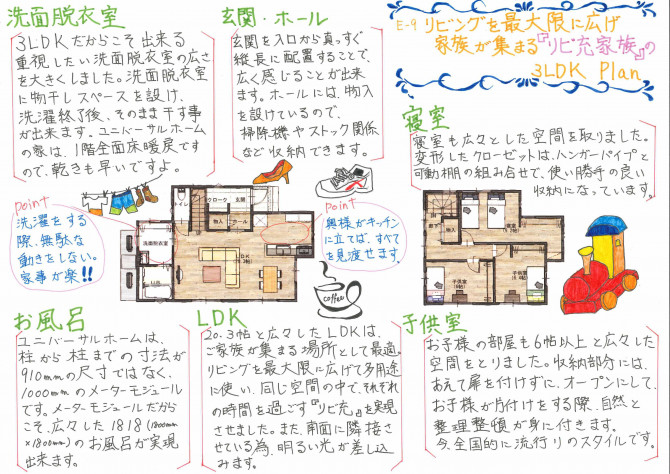 洗面脱衣室
3LDKだからこそ出来る
重視したい洗面脱衣室の広さ
を大きくしました。洗面脱衣室
に物干しスペースを設け、
洗濯終了後、そのまま干す事
が出来ます。ユニバーサルホーム
の家は、1階全面床暖房ですので、乾きも早いですよ。
玄関・ホール
玄関を入口から真っすぐ
縦長に配置することで、
広く感じることが出来
ます。ホールには、物入
を設けているので、
掃除機やストック関係
など収納できます。
E-9 リビングを最大限に広げ
家族が集まる『リビ充家族』の
3LDK Plan
寝室
寝室も広々とした空間を取りました。
変形したクローゼットは、ハンガーパイプと
可動棚の組み合せで、使い勝手の良い
収納になっています。
point
洗濯をする
際、無駄な
動きをしない。
家事が楽!!
point
奥様がキッチン
に立てば、すべて
を見渡せます。
クローク
玄関
物入
ホール
洗面脱衣室
LDK
物入
寝室
子供室
子供室
coffee
お風呂
ユニバーサルホームは、
柱から柱までの寸法が
910mmの尺寸ではなく、
1000mmのメーターモジュール
です。メーターモジュールだから
こそ、広々した1818(1800mm
×1800mm)のお風呂が実現
出来ます。
LDK
20.3帖と広々したLDKは、
ご家族が集まる場所として最適。
リビングを最大限に広げて多用途
に使い、同じ空間の中で、それぞれ
の時間を過ごす『リビ充』を実現
させました。また、南面に隣接さ
せている為、明るい光が差し込
みます。
子供室
お子様の部屋も6帖以上と広々した
空間をとりました。収納部分には、
あえて扉を付けずに、オープンにして、
お子様が片付けをする際、自然と
整理整頓が身に付きます。
今、全国的に流行りのスタイルです。